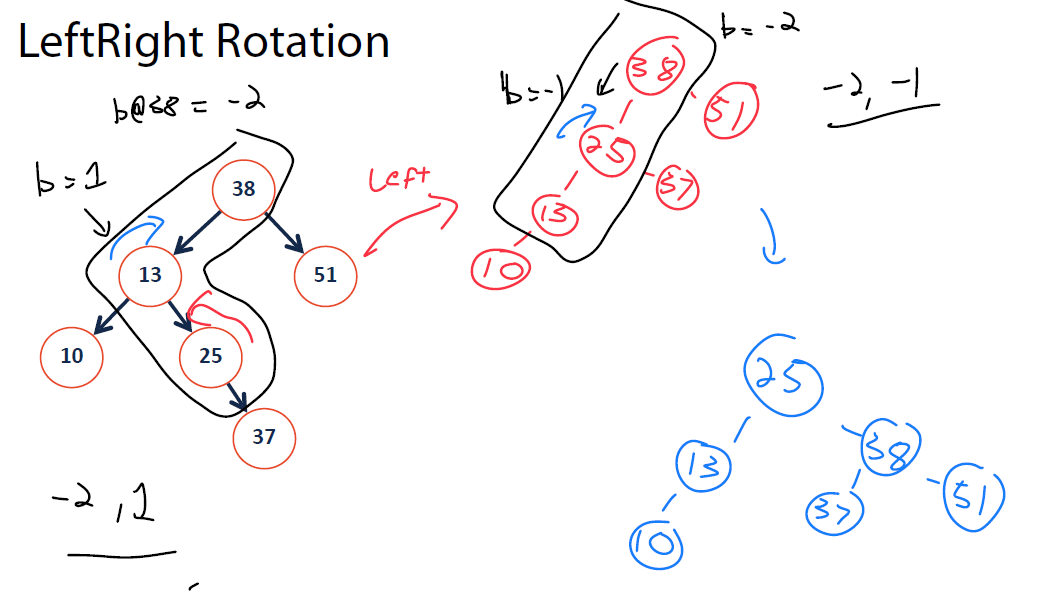 LeftRight Rotation
b@38 = -2
b = 1
38
13
51
10
25
37
-2, 1
Left
b = -1
b = -2
38
51
25
37
13
10
-2, -1
25
13
38
10
37
51